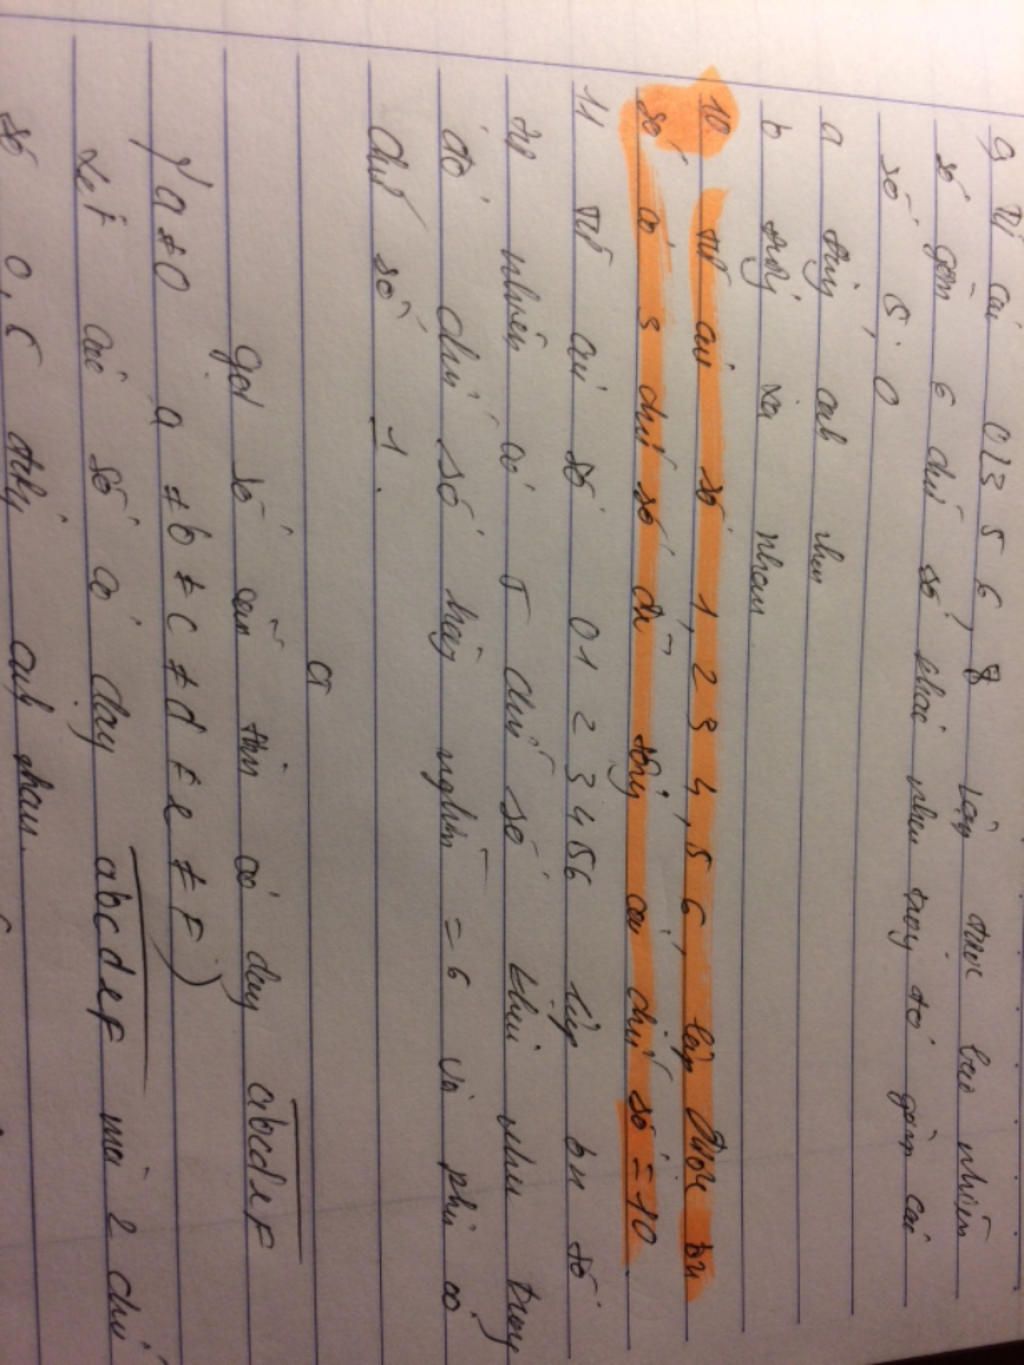 9 Từ các 0 1 3 5 6 8 lập được bao nhiêu
số gồm 6 chữ số khác nhau trong đó gồm cả
số 5, 0
a đứng cạnh nhau
b đứng xa nhau
10 Từ các số 1, 2 3 4, 5 6, lập được bn
số có 3 chữ số có tổng các chữ số = 10
11 Từ các số 0 1 2 3 4 5 6 lập bn số
tự nhiên có 5 chữ số khác nhau trong
đó chữ số hàng nghìn = 6 và phải có
chữ số 1.
a
gọi số cần tìm có dạng abcdef
a ≠ 0 a ≠ b ≠ c ≠ d ≠ e ≠ f)
Xét các số có dạng abcdef mà 2 chữ
số 0, 5 đứng cạnh nhau.